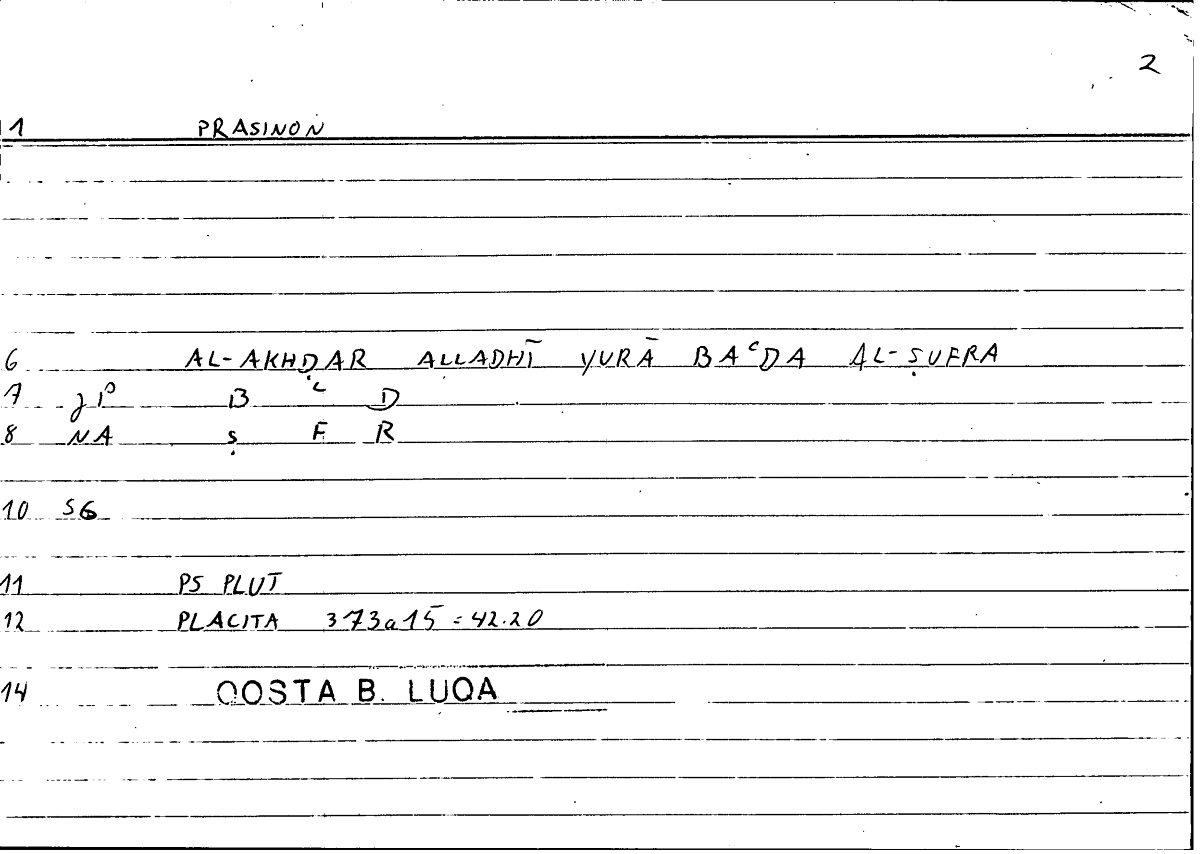 2
1 PRASINON
6 AL-AKHḌAR ALLADHĪ YURĀ BAᶜDA AL-ṢUFRA
7 JP B ᶜ D
8 NA Ṣ F R
10 SG
11 PS PLUT
12 PLACITA 373a15 = 42.20
14 QOSTA B. LUQA